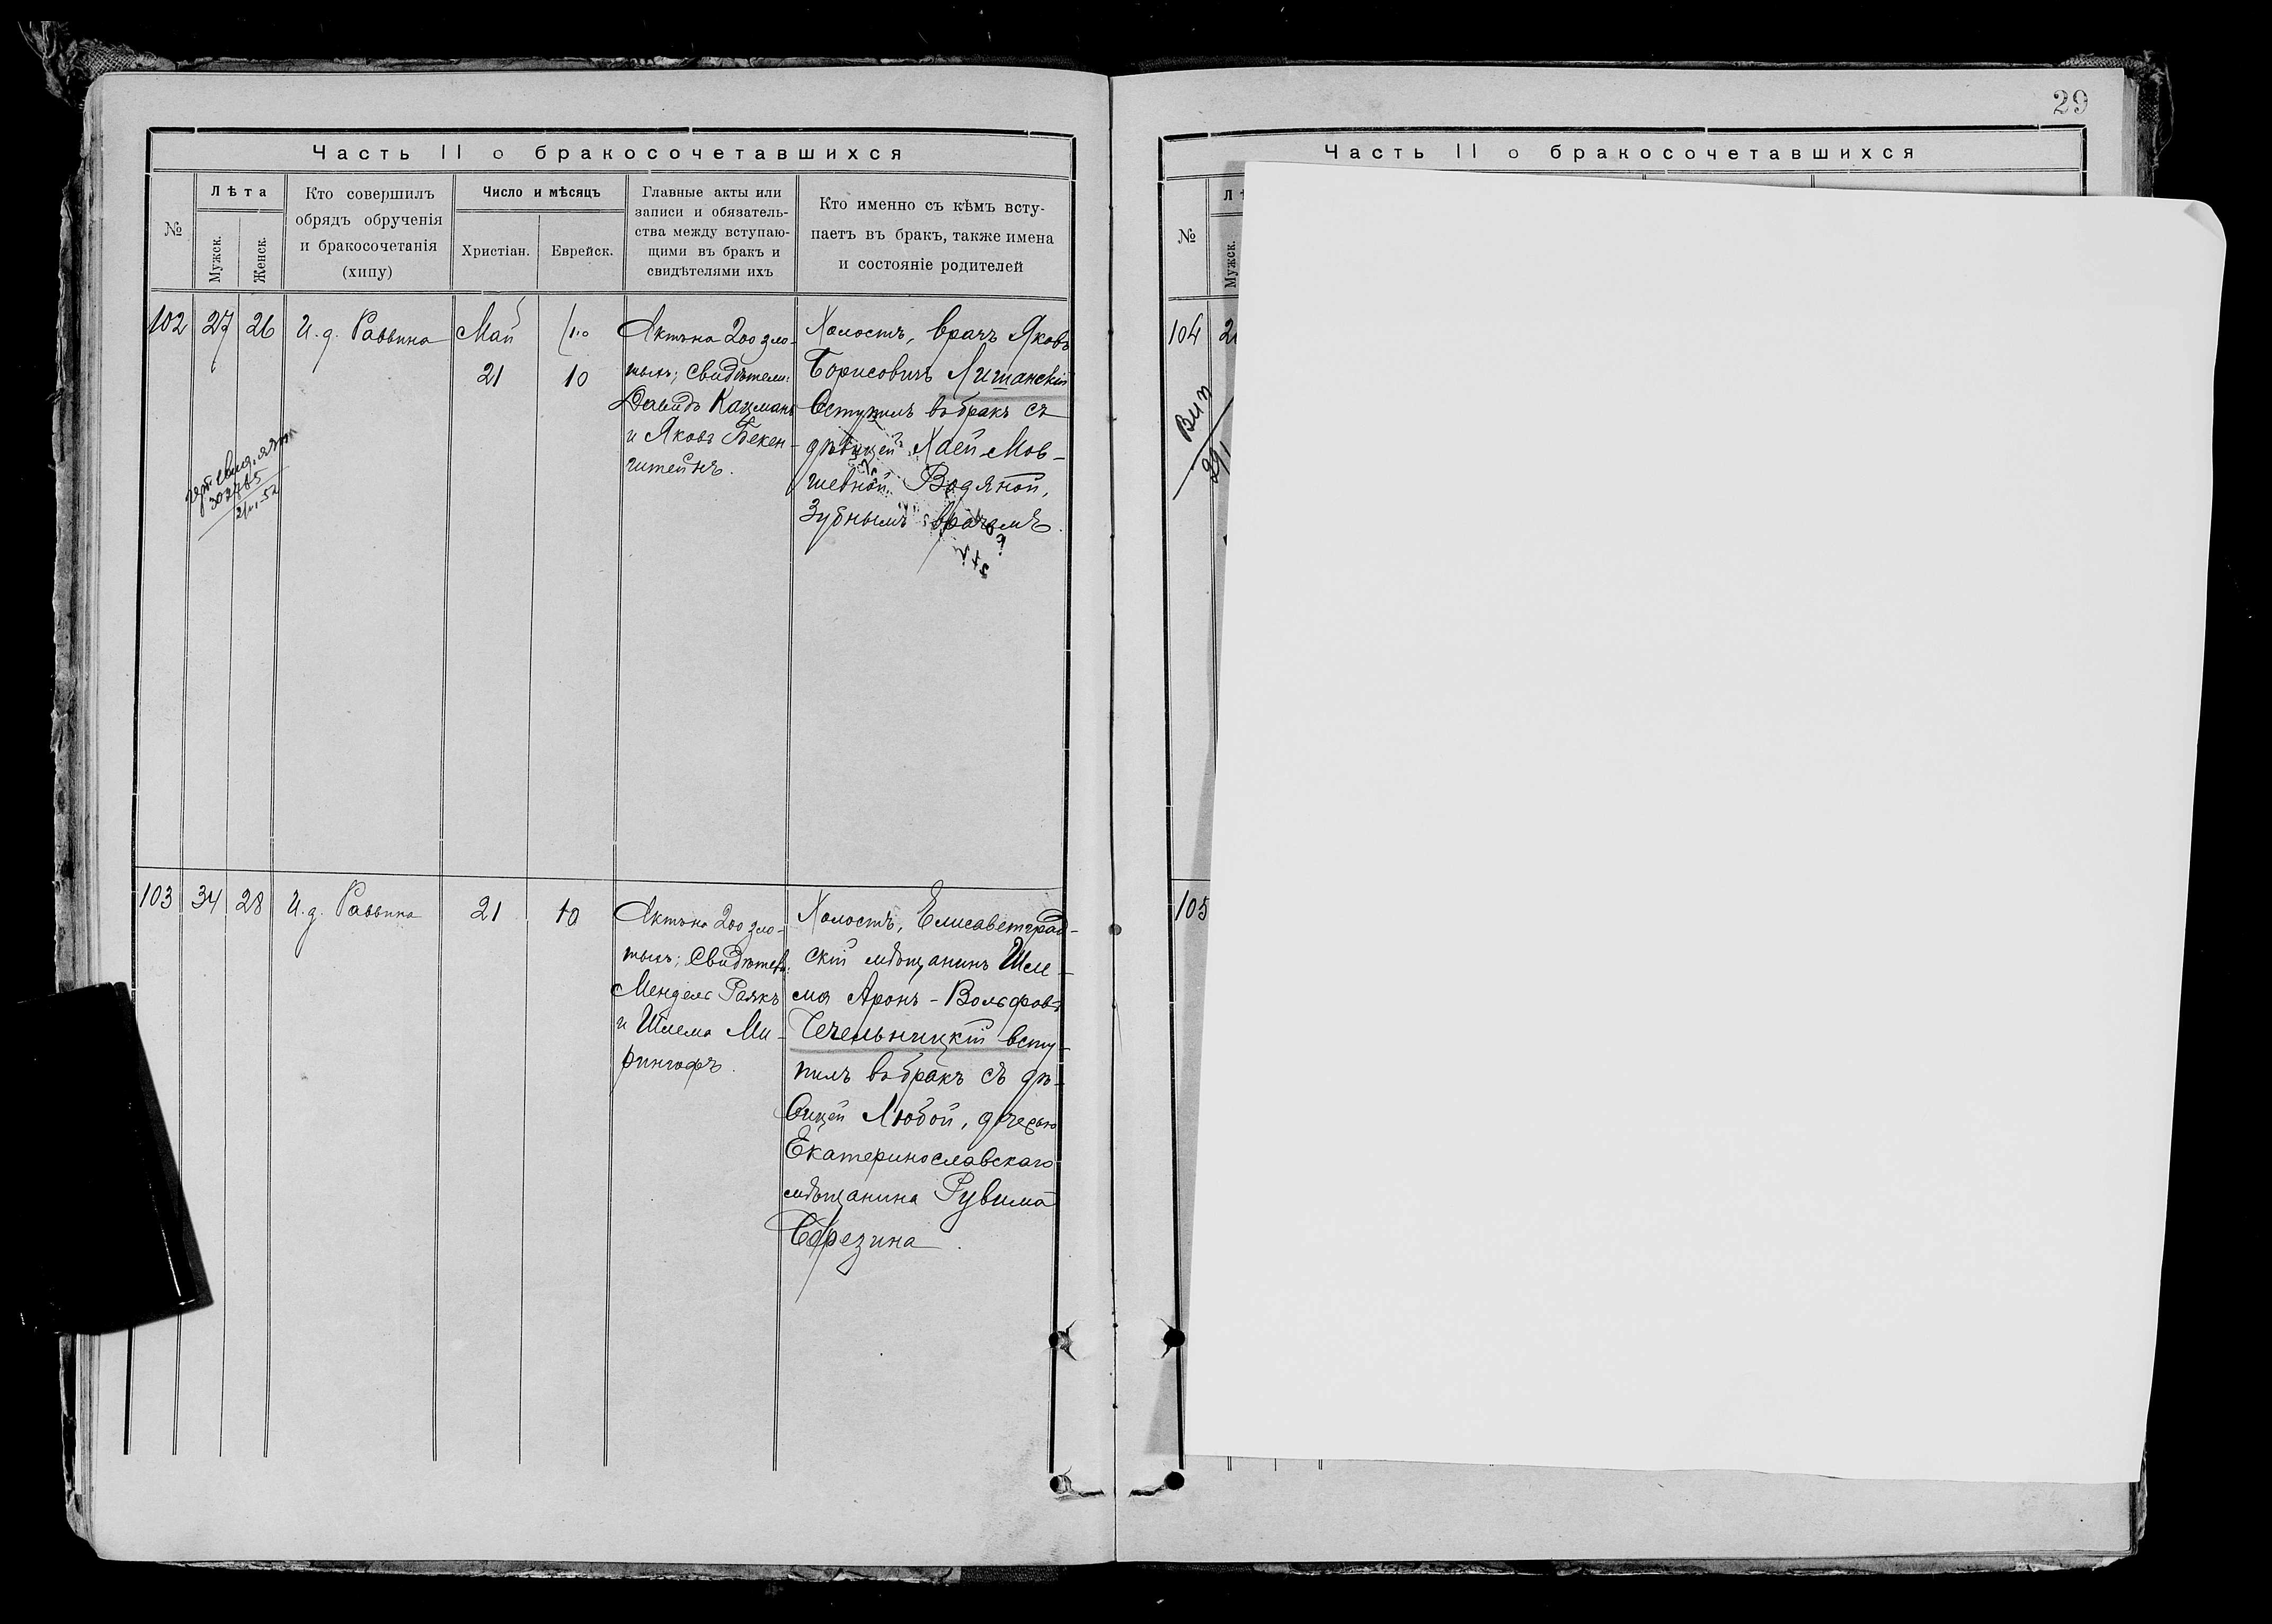 29
Часть II о бракосочетавшихся
№
Лѣта
Мужск.
Женск.
Кто совершилъ
обрядъ обрученія
и бракосочетанія
(хипу)
Число и мѣсяцъ
Христіан.
Еврейск.
Главные акты или
записи и обязатель-
ства между вступаю-
щими въ бракъ и
свидѣтелями ихъ
Кто именно съ кѣмъ всту-
паетъ въ бракъ, также имена
и состояніе родителей
102
27
26
И. д. Раввина
Май
21
10
Актъ на 200 зло-
тыхъ; Свидѣтели:
Давидъ Кацманъ
и Яковъ Бекен-
штейнъ.
Холостъ, врачъ Яковъ
Борисовичъ Лишанскій
Вступилъ въ бракъ съ
дѣвицей Хаей Мов-
шевной Водяной,
Зубнымъ врачемъ.
302785
103
34
28
И. д. Раввина
21
10
Актъ на 200 зло-
тыхъ; Свидѣтели:
Мендель Раякъ
и Шлема Ми-
рингофъ.
Холостъ, Елисаветград-
скій мѣщанинъ Шле-
ма Аронъ-Вольфовъ
Чечельницкій всту-
пилъ въ бракъ съ дѣ-
вицей Любой, дочерью
Екатеринославскаго
мѣщанина Рувима
Березина.
Часть II о бракосочетавшихся
№
Мужск.
104
Вип
105